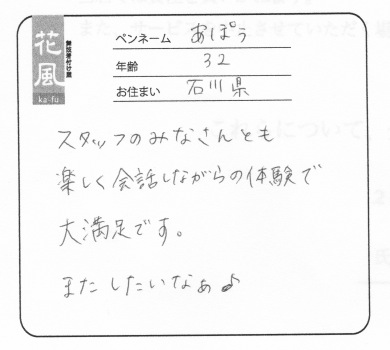 花風
ka-fu
ペンネーム あぽう
年齢 32
お住まい 石川県
スタッフのみなさんとも
楽しく会話しながらの体験で
大満足です。
またしたいなぁ♪